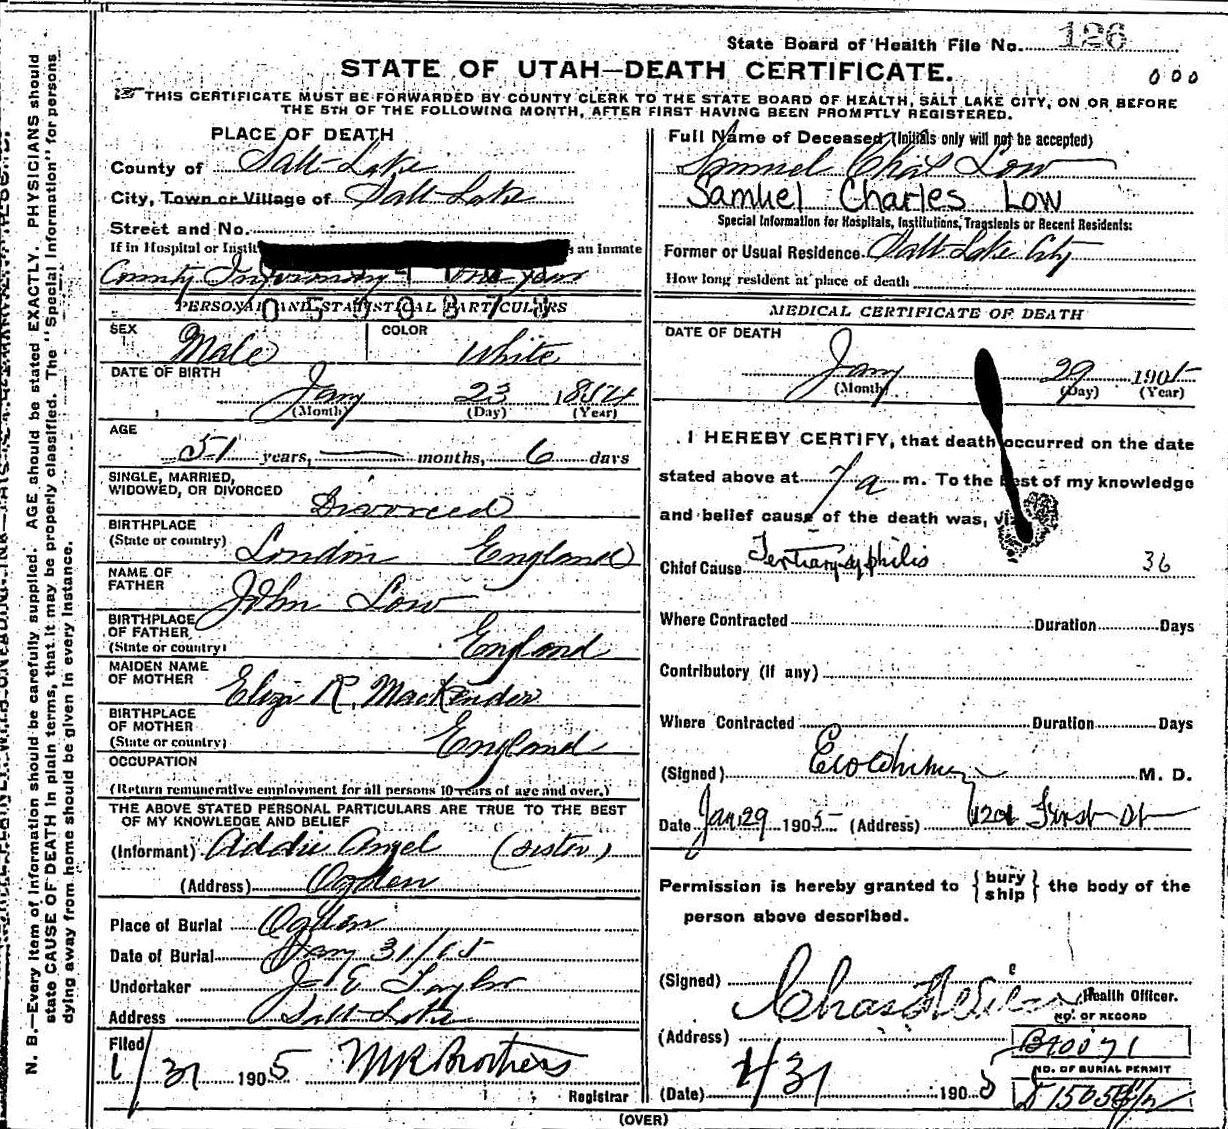 State Board of Health File No. 126
STATE OF UTAH—DEATH CERTIFICATE.
000
THIS CERTIFICATE MUST BE FORWARDED BY COUNTY CLERK TO THE STATE BOARD OF HEALTH, SALT LAKE CITY, ON OR BEFORE
THE 5TH OF THE FOLLOWING MONTH, AFTER FIRST HAVING BEEN PROMPTLY REGISTERED.
N. B.—Every item of information should be carefully supplied. AGE should be stated EXACTLY. PHYSICIANS should
state CAUSE OF DEATH in plain terms, that it may be properly classified. The "Special Information" for persons
dying away from home should be given in every instance.
PLACE OF DEATH
County of Salt Lake
City, Town or Village of Salt Lake
Street and No.
If in Hospital or Instit s an inmate
County Infirmary one year
PERSONAL AND STATISTICAL PARTICULARS
SEX Male COLOR White
DATE OF BIRTH
Jany 23 1854
(Month) (Day) (Year)
AGE
51 years, months, 6 days
SINGLE, MARRIED,
WIDOWED, OR DIVORCED Divorced
BIRTHPLACE
(State or country) London England
NAME OF
FATHER John Low
BIRTHPLACE
OF FATHER
(State or country) England
MAIDEN NAME
OF MOTHER Eliza R. Mackender
BIRTHPLACE
OF MOTHER
(State or country) England
OCCUPATION
(Return remunerative employment for all persons 10 years of age and over.)
THE ABOVE STATED PERSONAL PARTICULARS ARE TRUE TO THE BEST
OF MY KNOWLEDGE AND BELIEF
(Informant) Addie Angel (sister)
(Address) Ogden
Place of Burial Ogden
Date of Burial Jany 31/05
Undertaker J E Taylor
Address Salt Lake
Filed
1/31 1905
Registrar
Full Name of Deceased (Initials only will not be accepted)
Samuel Chas Low
Samuel Charles Low
Special Information for Hospitals, Institutions, Transients or Recent Residents:
Former or Usual Residence Salt Lake City
How long resident at place of death
MEDICAL CERTIFICATE OF DEATH
DATE OF DEATH
Jany 29 1905
(Month) (Day) (Year)
I HEREBY CERTIFY, that death occurred on the date
stated above at 7 a m. To the best of my knowledge
and belief cause of the death was, viz
Chief Cause Tertiary syphilis 36
Where Contracted Duration Days
Contributory (if any)
Where Contracted Duration Days
(Signed) M. D.
Date Jan 29 1905 (Address)
Permission is hereby granted to { bury ship } the body of the
person above described.
(Signed) Chas
Health Officer.
(Address)
NO. OF RECORD
B40071
NO. OF BURIAL PERMIT
(Date) 1/31 1905
(OVER)